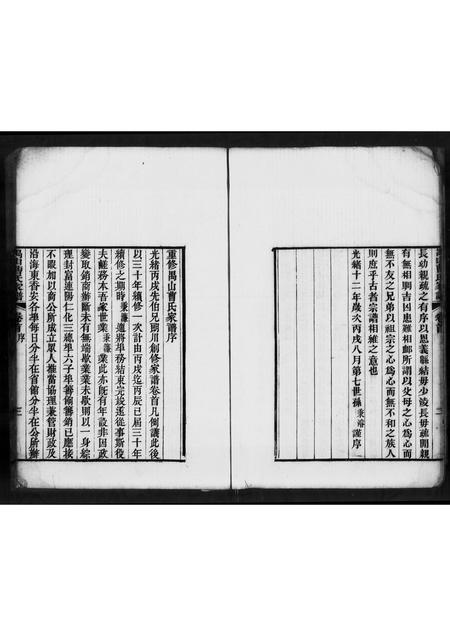 長幼親疎之有序以恩義縣結毋少陵長毋疏閒親
有無相賙吉凶患難相䘏所謂以父母之心為心而
無不友之兄弟以祖宗之心為心而無不和之族人
則庶乎古者宗譜相維之意也
光緒十二年歲次丙戌八月第七世孫秉濬謹序
重修禺山曹氏家譜序
光緒丙戌先伯兄國川創修家譜卷首凡倒議此後
以三十年續修一次計由丙戌迄丙辰已屆三十年
續修之期時秉濂適將埠務結束完竣遂從事斯役
夫鹺務本吾家世業秉濂業此亦既有年設非因政
變取銷商辦斷未有無端歇業業未歇則以一身綜
理封富連陽仁化三總埠六子埠籌餉籌銷已應接
不暇加以商公所成立眾人推當協理兼管財政及
沿海東香安各埠每日分半在省備分半在公所辦
卷首 序